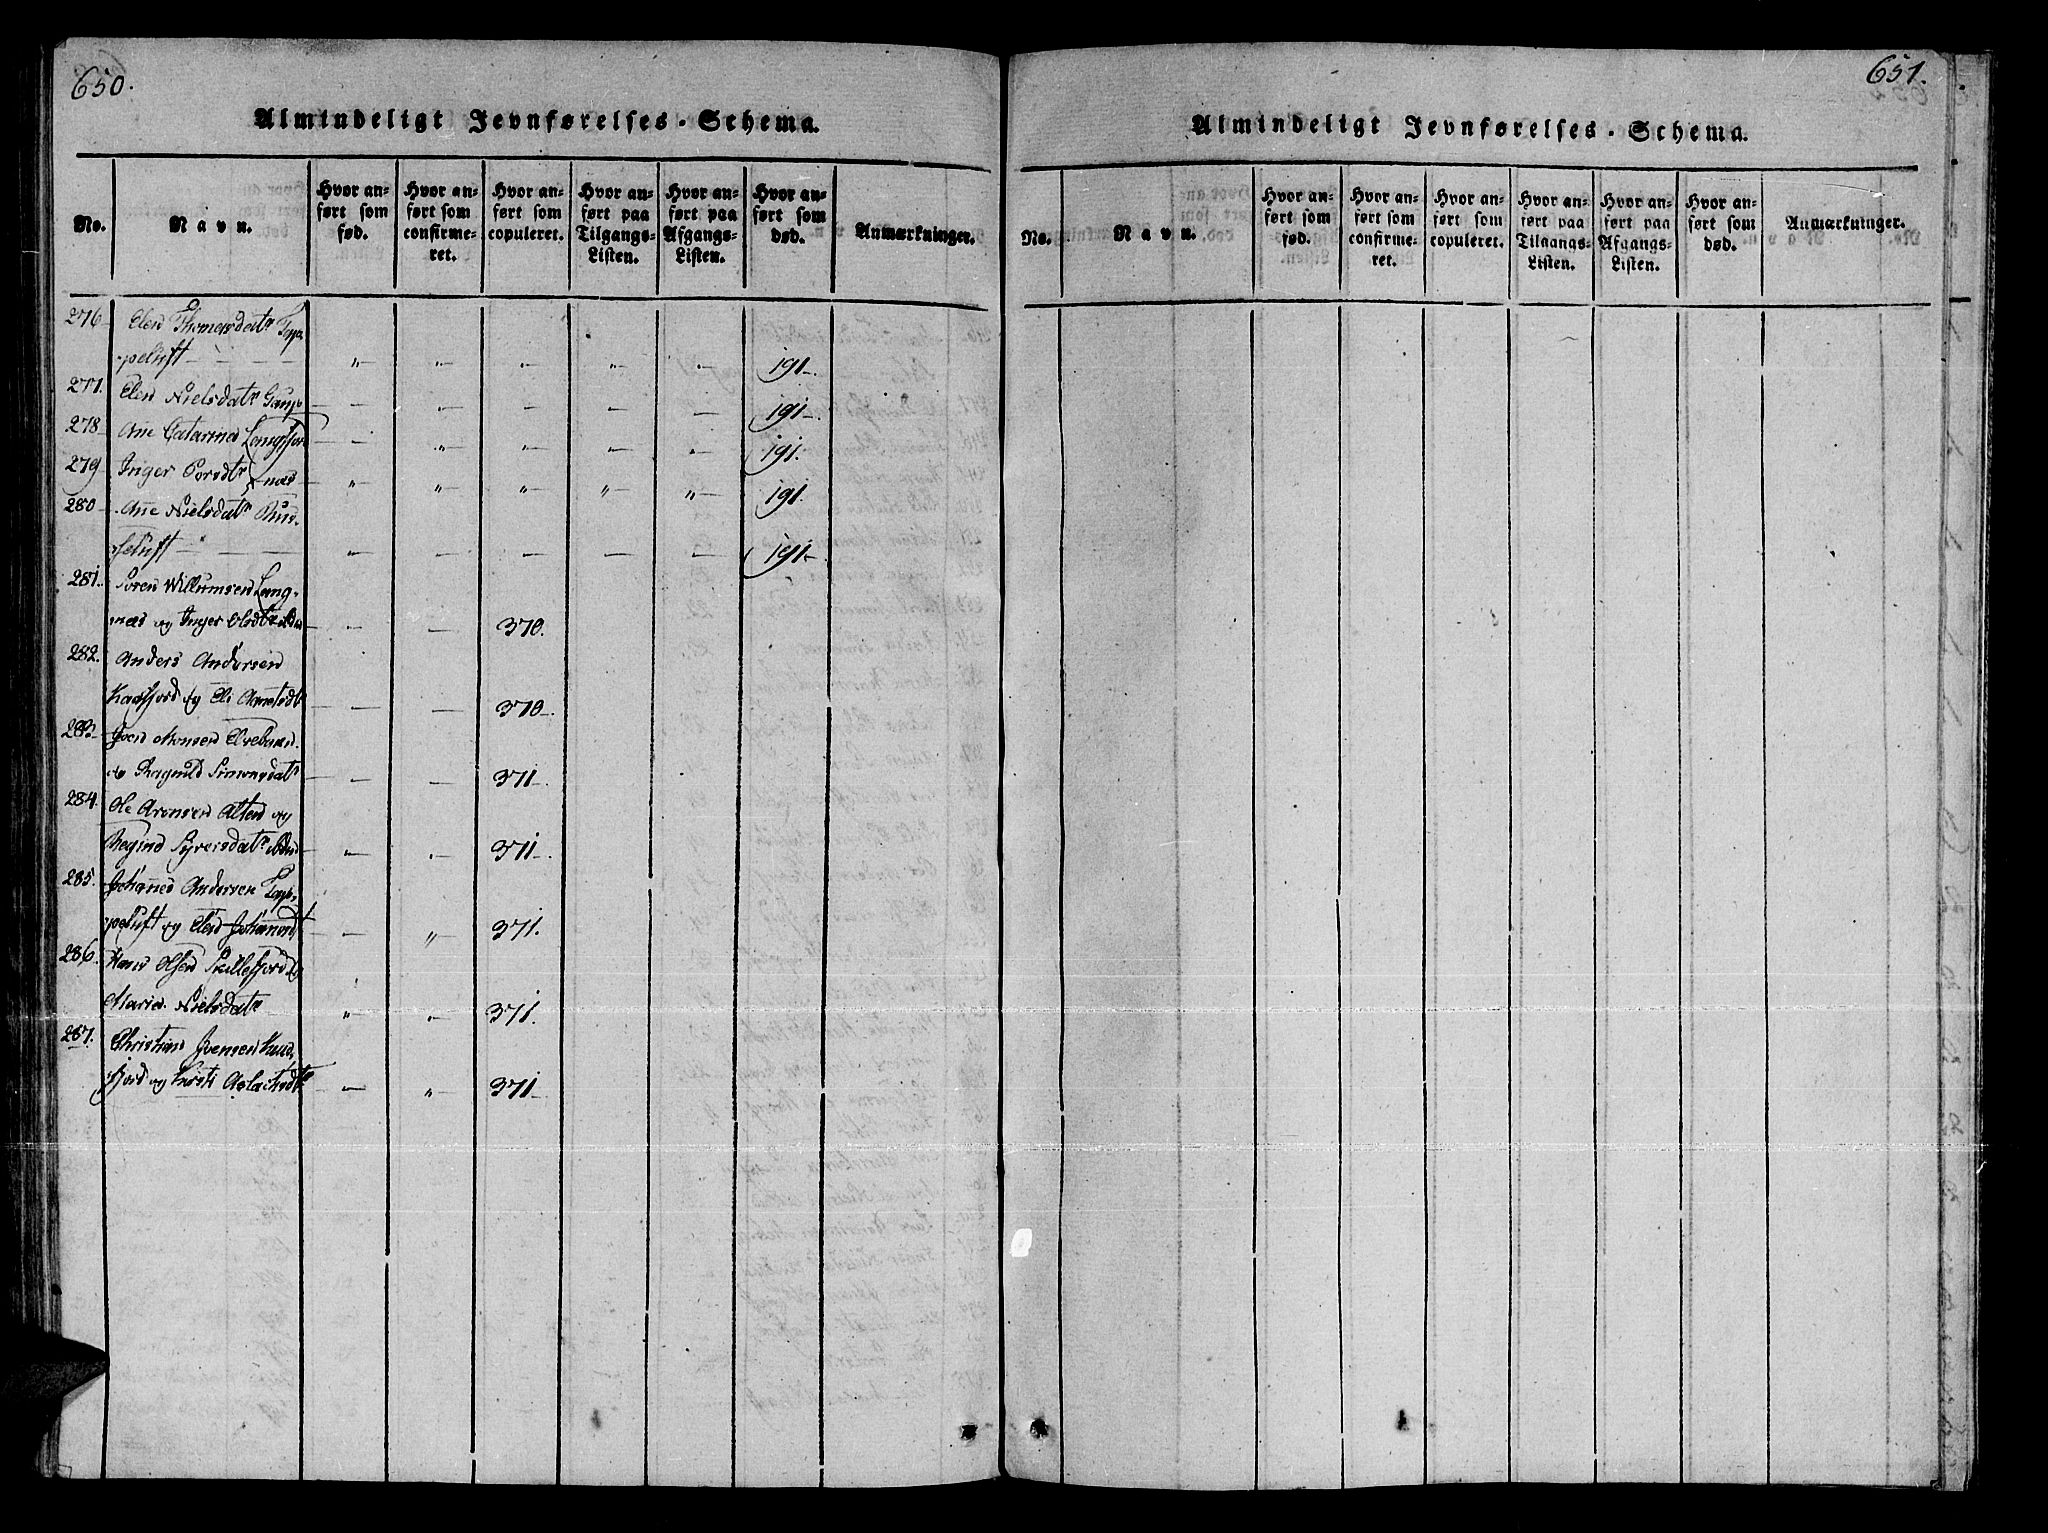 650.
Almindeligt Jevnførelses-Schema.
No.
Navn.
Hvor anført som fød.
Hvor anført som confirmeret.
Hvor anført som copuleret.
Hvor anført paa Tilgangs-Listen.
Hvor anført paa Afgangs-Listen.
Hvor anført som død.
Anmærkninger.
276 Elen Thomasdatr Tap-
peluft - " " " " " 191.
277. Elen Nielsdatr Gaup - - - - - - 191.
278 Ane Catarina Langfjor - - " - - - 191.
279 Inger Porsdtr næs " " " " " 191.
280 Ane Nielsdatr Rus-
seluft - - - - - - 191.
281. Soren Willumsen Lang-
næs og Inger Olsdtr - - 370.
282. Anders Andersen
Kaafjord og Eli - - 370.
283. Iven Monsen Elvebaken
og Ragnild Simonsdatr - - 371.
284. Ole Aronsen Alten og
Regind Syversdatr " - 371.
285. Johannes Andersen Tap-
peluft og Elen - " 371.
286. Hans Olsen Skillefjord og
Maria Nielsdatr " - 371.
287. Christian Ivensen
fjord og Kirsti Aslachsdtr - " 371.
651.
Almindeligt Jevnførelses-Schema.
No.
Navn.
Hvor anført som fød.
Hvor anført som confirmeret.
Hvor anført som copuleret.
Hvor anført paa Tilgangs-Listen.
Hvor anført paa Afgangs-Listen.
Hvor anført som død.
Anmærkninger.